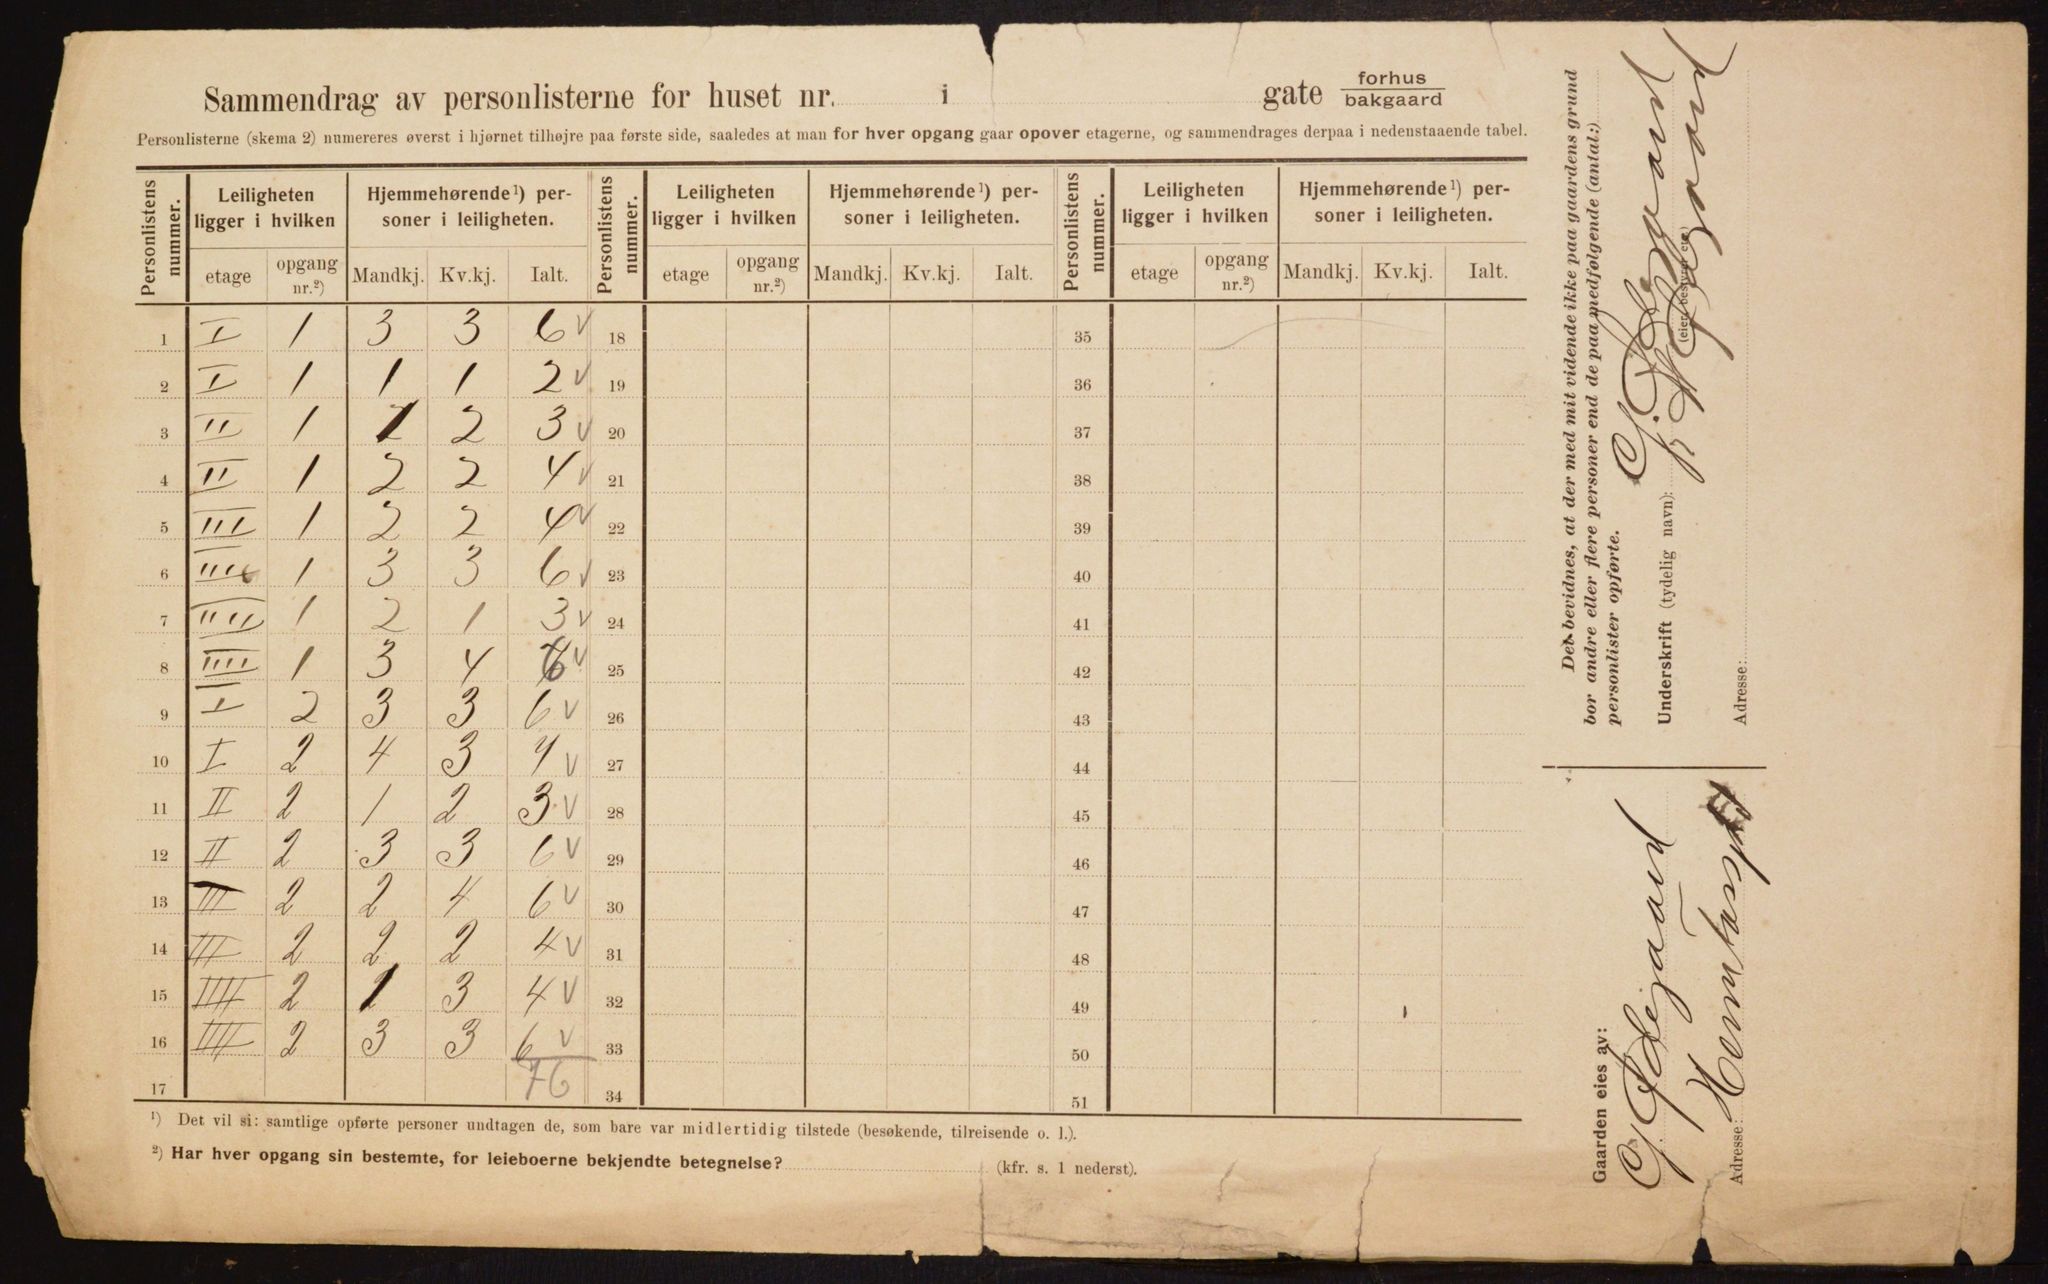 Sammendrag av personlisterne for huset nr. i gate forhus
bakgaard
Personlisterne (skema 2) numereres øverst i hjørnet tilhøjre paa første side, saaledes at man for hver opgang gaar opover etagerne, og sammendrages derpaa i nedenstaaende tabel.
Personlistens nummer. Leiligheten ligger i hvilken Hjemmehørende¹) personer i leiligheten. Personlistens nummer. Leiligheten ligger i hvilken Hjemmehørende¹) personer i leiligheten. Personlistens nummer. Leiligheten ligger i hvilken Hjemmehørende¹) personer i leiligheten.
etage opgang nr.²) Mandkj. Kv.kj. Ialt. etage opgang nr.²) Mandkj. Kv.kj. Ialt. etage opgang nr.²) Mandkj. Kv.kj. Ialt.
1 I 1 3 3 6 v 18 35
2 I 1 1 1 2 v 19 36
3 II 1 1 2 3 v 20 37
4 II 1 2 2 4 v 21 38
5 III 1 2 2 4 v 22 39
6 III 1 3 3 6 v 23 40
7 IIII 1 2 1 3 v 24 41
8 IIII 1 3 4 v 25 42
9 I 2 3 3 6 v 26 43
10 I 2 4 3 7 v 27 44
11 II 2 1 2 3 v 28 45
12 II 2 3 3 6 v 29 46
13 III 2 2 4 6 v 30 47
14 III 2 2 2 4 v 31 48
15 IIII 2 1 3 4 v 32 49
16 IIII 2 3 3 6 v 33 50
17 76 34 51
¹) Det vil si: samtlige opførte personer undtagen de, som bare var midlertidig tilstede (besøkende, tilreisende o. l.).
²) Har hver opgang sin bestemte, for leieboerne bekjendte betegnelse? (kfr. s. 1 nederst).
Det bevidnes, at der med mit vidende ikke paa gaardens grund
bor andre eller flere personer end de paa medfølgende (antal:)
personlister opførte.
G. Ødegaard
Underskrift (tydelig navn):
(eier, bestyrer etc.)
Adresse:
Gaarden eies av:
G Ødegaard
Adresse: